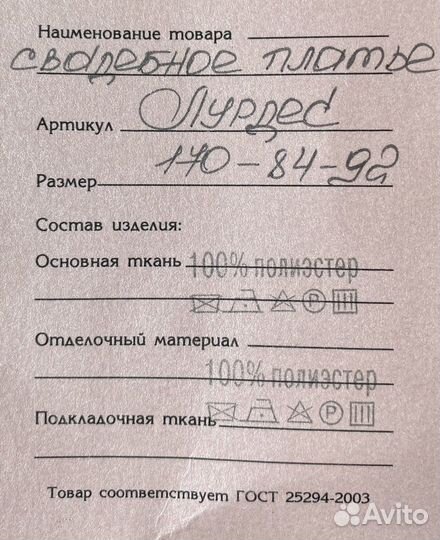 Наименование товара
свадебное платье
Артикул Лурдес
Размер 170-84-92
Состав изделия:
Основная ткань 100% полиэстер
Отделочный материал
100% полиэстер
Подкладочная ткань
Товар соответствует ГОСТ 25294-2003
Avito